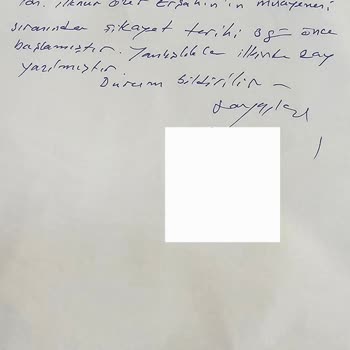 Özel Erşahin'in muayenesi
sırasında şikayet tarihi 3 gün önce
başlamıştır. Yanlışlıkla ilkinde 2 ay
yazılmıştır.
Durum bildirilir
Saygılar